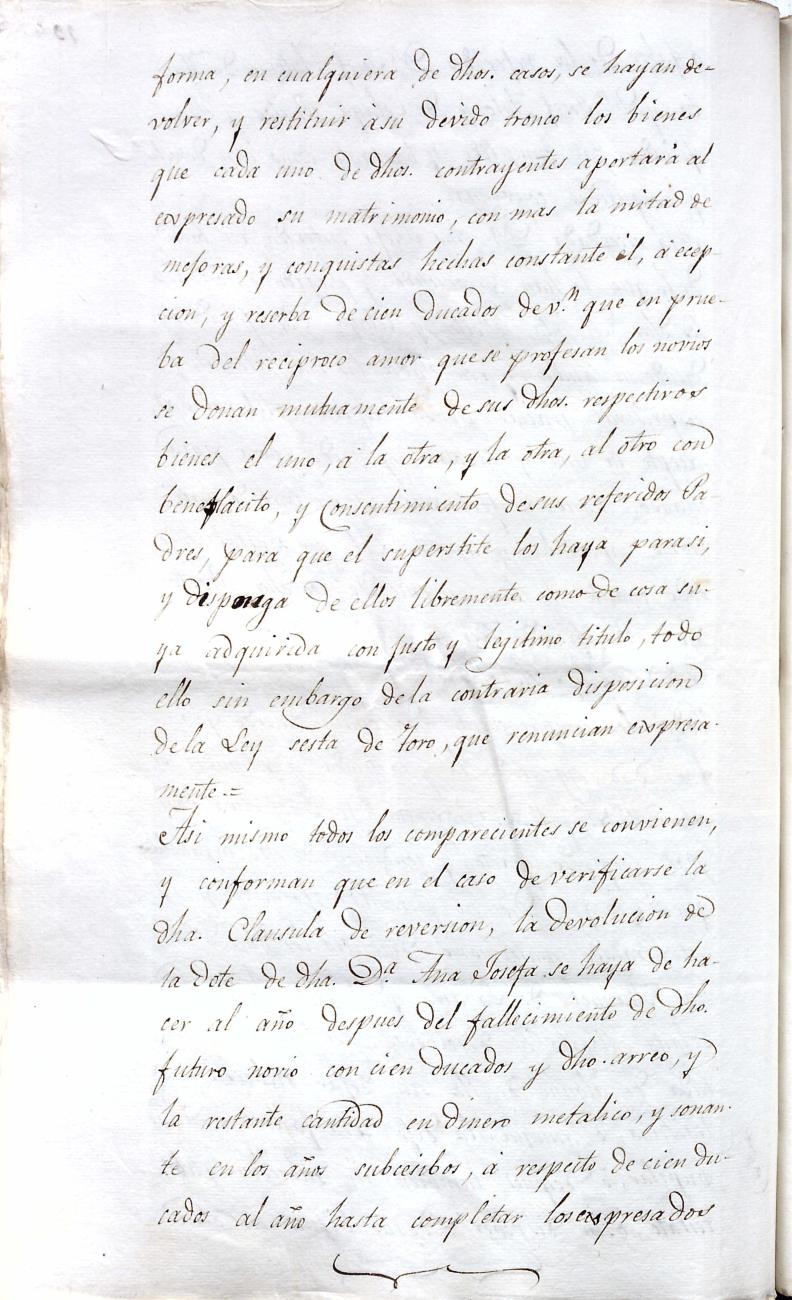 forma, en cualquiera de dhos. casos, se hayan de=
volver, y restituir àsu devido tronco los bienes
que cada uno de dhos. contrayentes aportará al
expresado su matrimonio, con mas la mitad de
mejoras, y conquistas hechas constante él, á ecep-
cion, y reserba de cien ducados de v.n que en prue-
ba del reciproco amor que se profesan los novios
se donan mutuamente de sus dhos. respectivos
bienes el uno, á la otra, y la otra, al otro con
beneplacito, y Consentimiento de sus referidos Pa-
dres, para que el superstite los haya parasi,
y disponga de ellos libremente como de cosa su-
ya adquirida con justo y legitimo titulo, todo
ello sin embargo dela contraria disposicion
dela Ley sesta de Toro, que renuncian expresa-
mente.=
Asi mismo todos los comparecientes se convienen,
y conforman que en el caso de verificarse la
dha. Clausula de reversion, la devolucion de
la Dote de dha. D.a Ana Josefa se haya de ha-
cer al año despues del fallecimiento de dho.
futuro novio con cien ducados y dho. arreo, y
la restante cantidad en dinero metalico, y sonan-
te en los años subcesibos, á respecto de cien du-
cados al año hasta completar los expresados